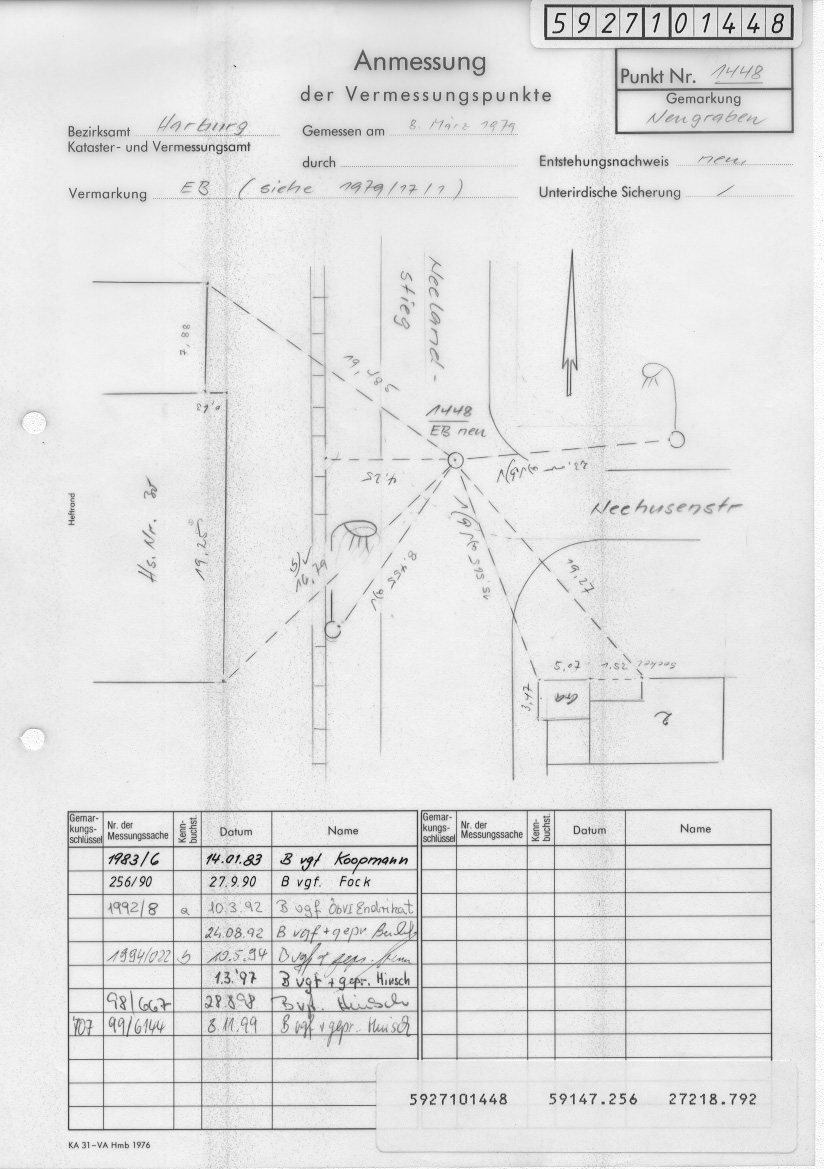 5927101448
Anmessung
der Vermessungspunkte
Punkt Nr. 1448
Gemarkung
Neugraben
Bezirksamt Harburg
Kataster- und Vermessungsamt
Gemessen am 8. März 1979
durch
Entstehungsnachweis neu
Vermarkung EB (siehe 1979/17/1)
Unterirdische Sicherung /
Neeland-
stieg
7,88
19,485
1448
EB neu
4,25
Hs. Nr. 30
19,25
Heftrand
b)
16,79
8,455 a)
15,565 a) b)
19,27
Neehusenstr
5,07
1.52
Sockel
3,47
Gra
Gemar-
kungs-
schlüssel
Nr. der
Messungssache
Kenn-
buchst.
Datum
Name
Gemar-
kungs-
schlüssel
Nr. der
Messungssache
Kenn-
buchst.
Datum
Name
1983/6 14.01.83 B vgf Koopmann
256/90 27.9.90 B vgf. Fock
1992/8 a 10.3.92 B vgf ÖbVI Endrikat
24.08.92 B vgf + gepr.
1994/022 b 10.5.94 B vgf + gepr.
1.3.'97 B vgf + gepr. Hinsch
98/667 28.8.98 B vgf. Hinsch
707 99/6144 8.11.99 B vgf + gepr. Hinsch
5927101448 59147.256 27218.792
KA 31–VA Hmb 1976